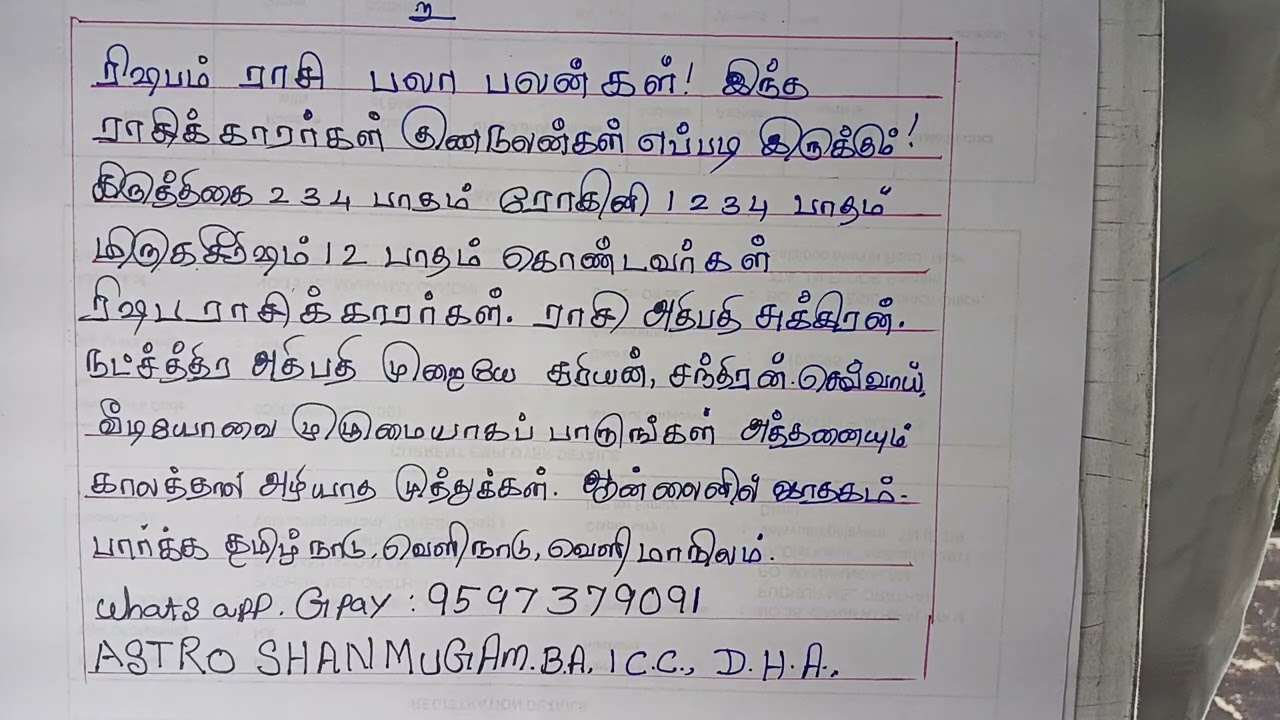 ரிஷபம் ராசி பலா பலன்கள்! இந்த
ராசிக்காரர்கள் குணநலன்கள் எப்படி இருக்கும்!
கிருத்திகை 2 3 4 பாதம் ரோகினி 1 2 3 4 பாதம்
மிருகசீரிஷம் 1 2 பாதம் கொண்டவர்கள்
ரிஷப ராசிக்காரர்கள். ராசி அதிபதி சுக்கிரன்.
நட்சத்திர அதிபதி முறையே சூரியன், சந்திரன். செவ்வாய்,
வீடியோவை முழுமையாகப் பாருங்கள் அத்தனையும்
காலத்தால் அழியாத முத்துக்கள். ஆன்லைனில் ஜாதகம்.
பார்க்க தமிழ்நாடு, வெளிநாடு, வெளி மாநிலம்.
Whats app. Gpay : 9597379091
ASTRO SHANMUGAM. B.A, I C.C., D.H.A.,